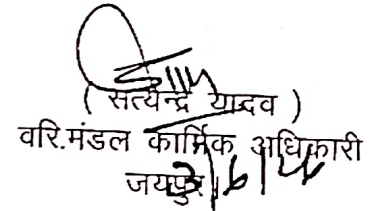 ( सत्येन्द्र यादव )
वरि.मंडल कार्मिक अधिकारी
जयपुर